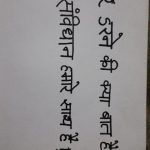 डरेन की क्या बात है
संविधान हमारे साथ है